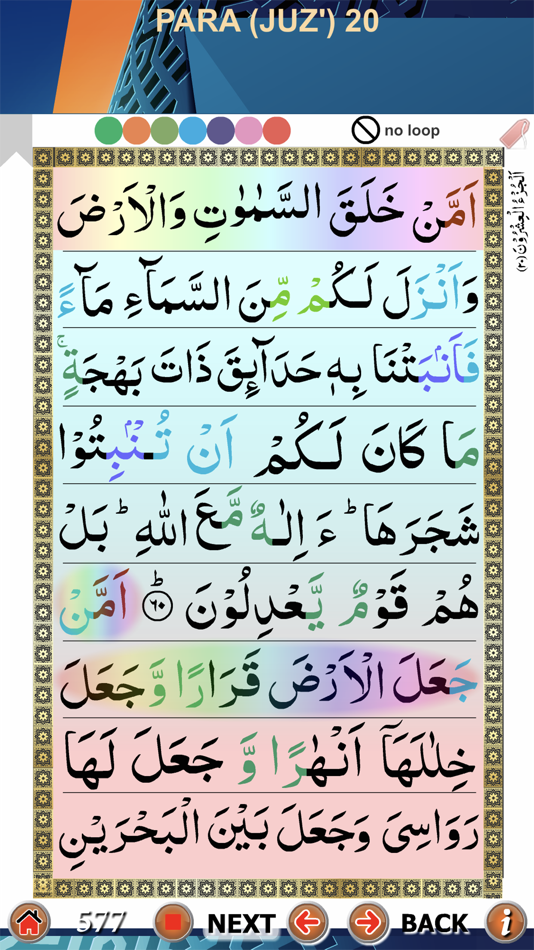 PARA (JUZ') 20
no loop
اَلْجُزْءُ الْعِشْرُوْنَ (۲۰)
اَمَّنْ خَلَقَ السَّمٰوٰتِ وَالْاَرْضَ
وَاَنْزَلَ لَكُمْ مِّنَ السَّمَآءِ مَآءً
فَاَنْۢبَتْنَا بِهٖ حَدَآئِقَ ذَاتَ بَهْجَةٍ ۚ
مَا كَانَ لَكُمْ اَنْ تُنْۢبِتُوْا
شَجَرَهَا ؕ ءَ اِلٰهٌ مَّعَ اللّٰهِ ؕ بَلْ
هُمْ قَوْمٌ يَّعْدِلُوْنَ ؕ‏ ﴿۶۰﴾ اَمَّنْ
جَعَلَ الْاَرْضَ قَرَارًا وَّجَعَلَ
خِلٰلَهَاۤ اَنْهٰرًا وَّ جَعَلَ لَهَا
رَوَاسِىَ وَجَعَلَ بَيْنَ الْبَحْرَيْنِ
577 NEXT BACK i